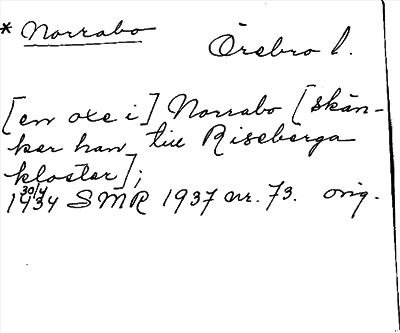 * Norrabo
Örebro l.
[en oxe i] Norrabo [skän-
ker han till Riseberga
kloster];
30/4
1434 SMR 1937 nr. 73. orig.